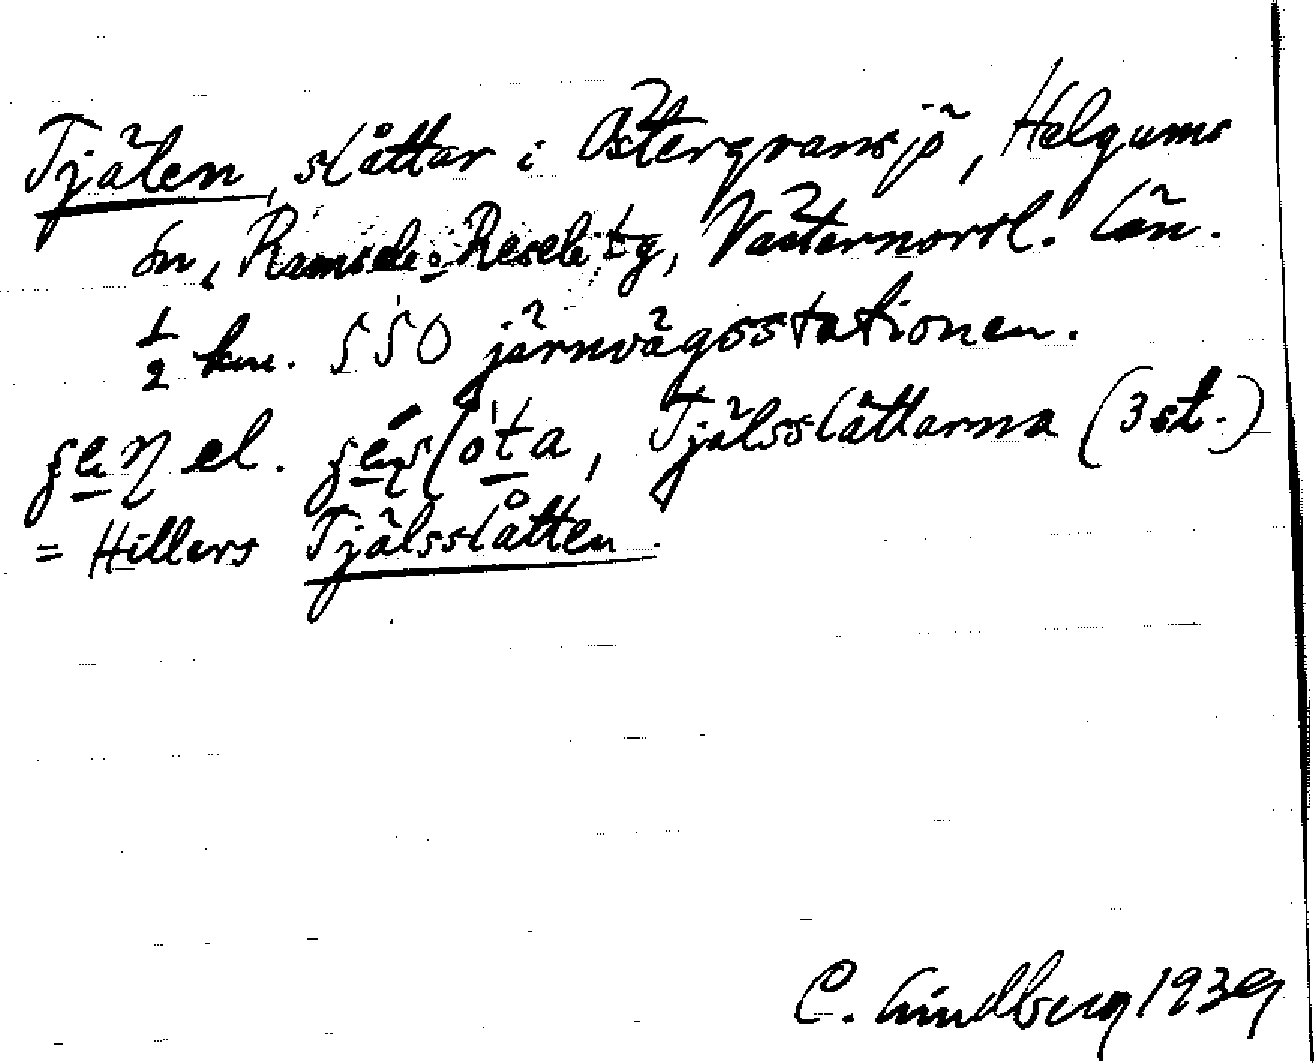 Tjälen, slåttar i Östergransjö, Helgums
sn, Ramsele-Resele tg, Västernorrl. län.
1/2 km. SSO järnvägsstationen.
el. , Tjälsslåttarna (3 st.)
= Hillers Tjälsslåtten.
C. Lindberg 1939